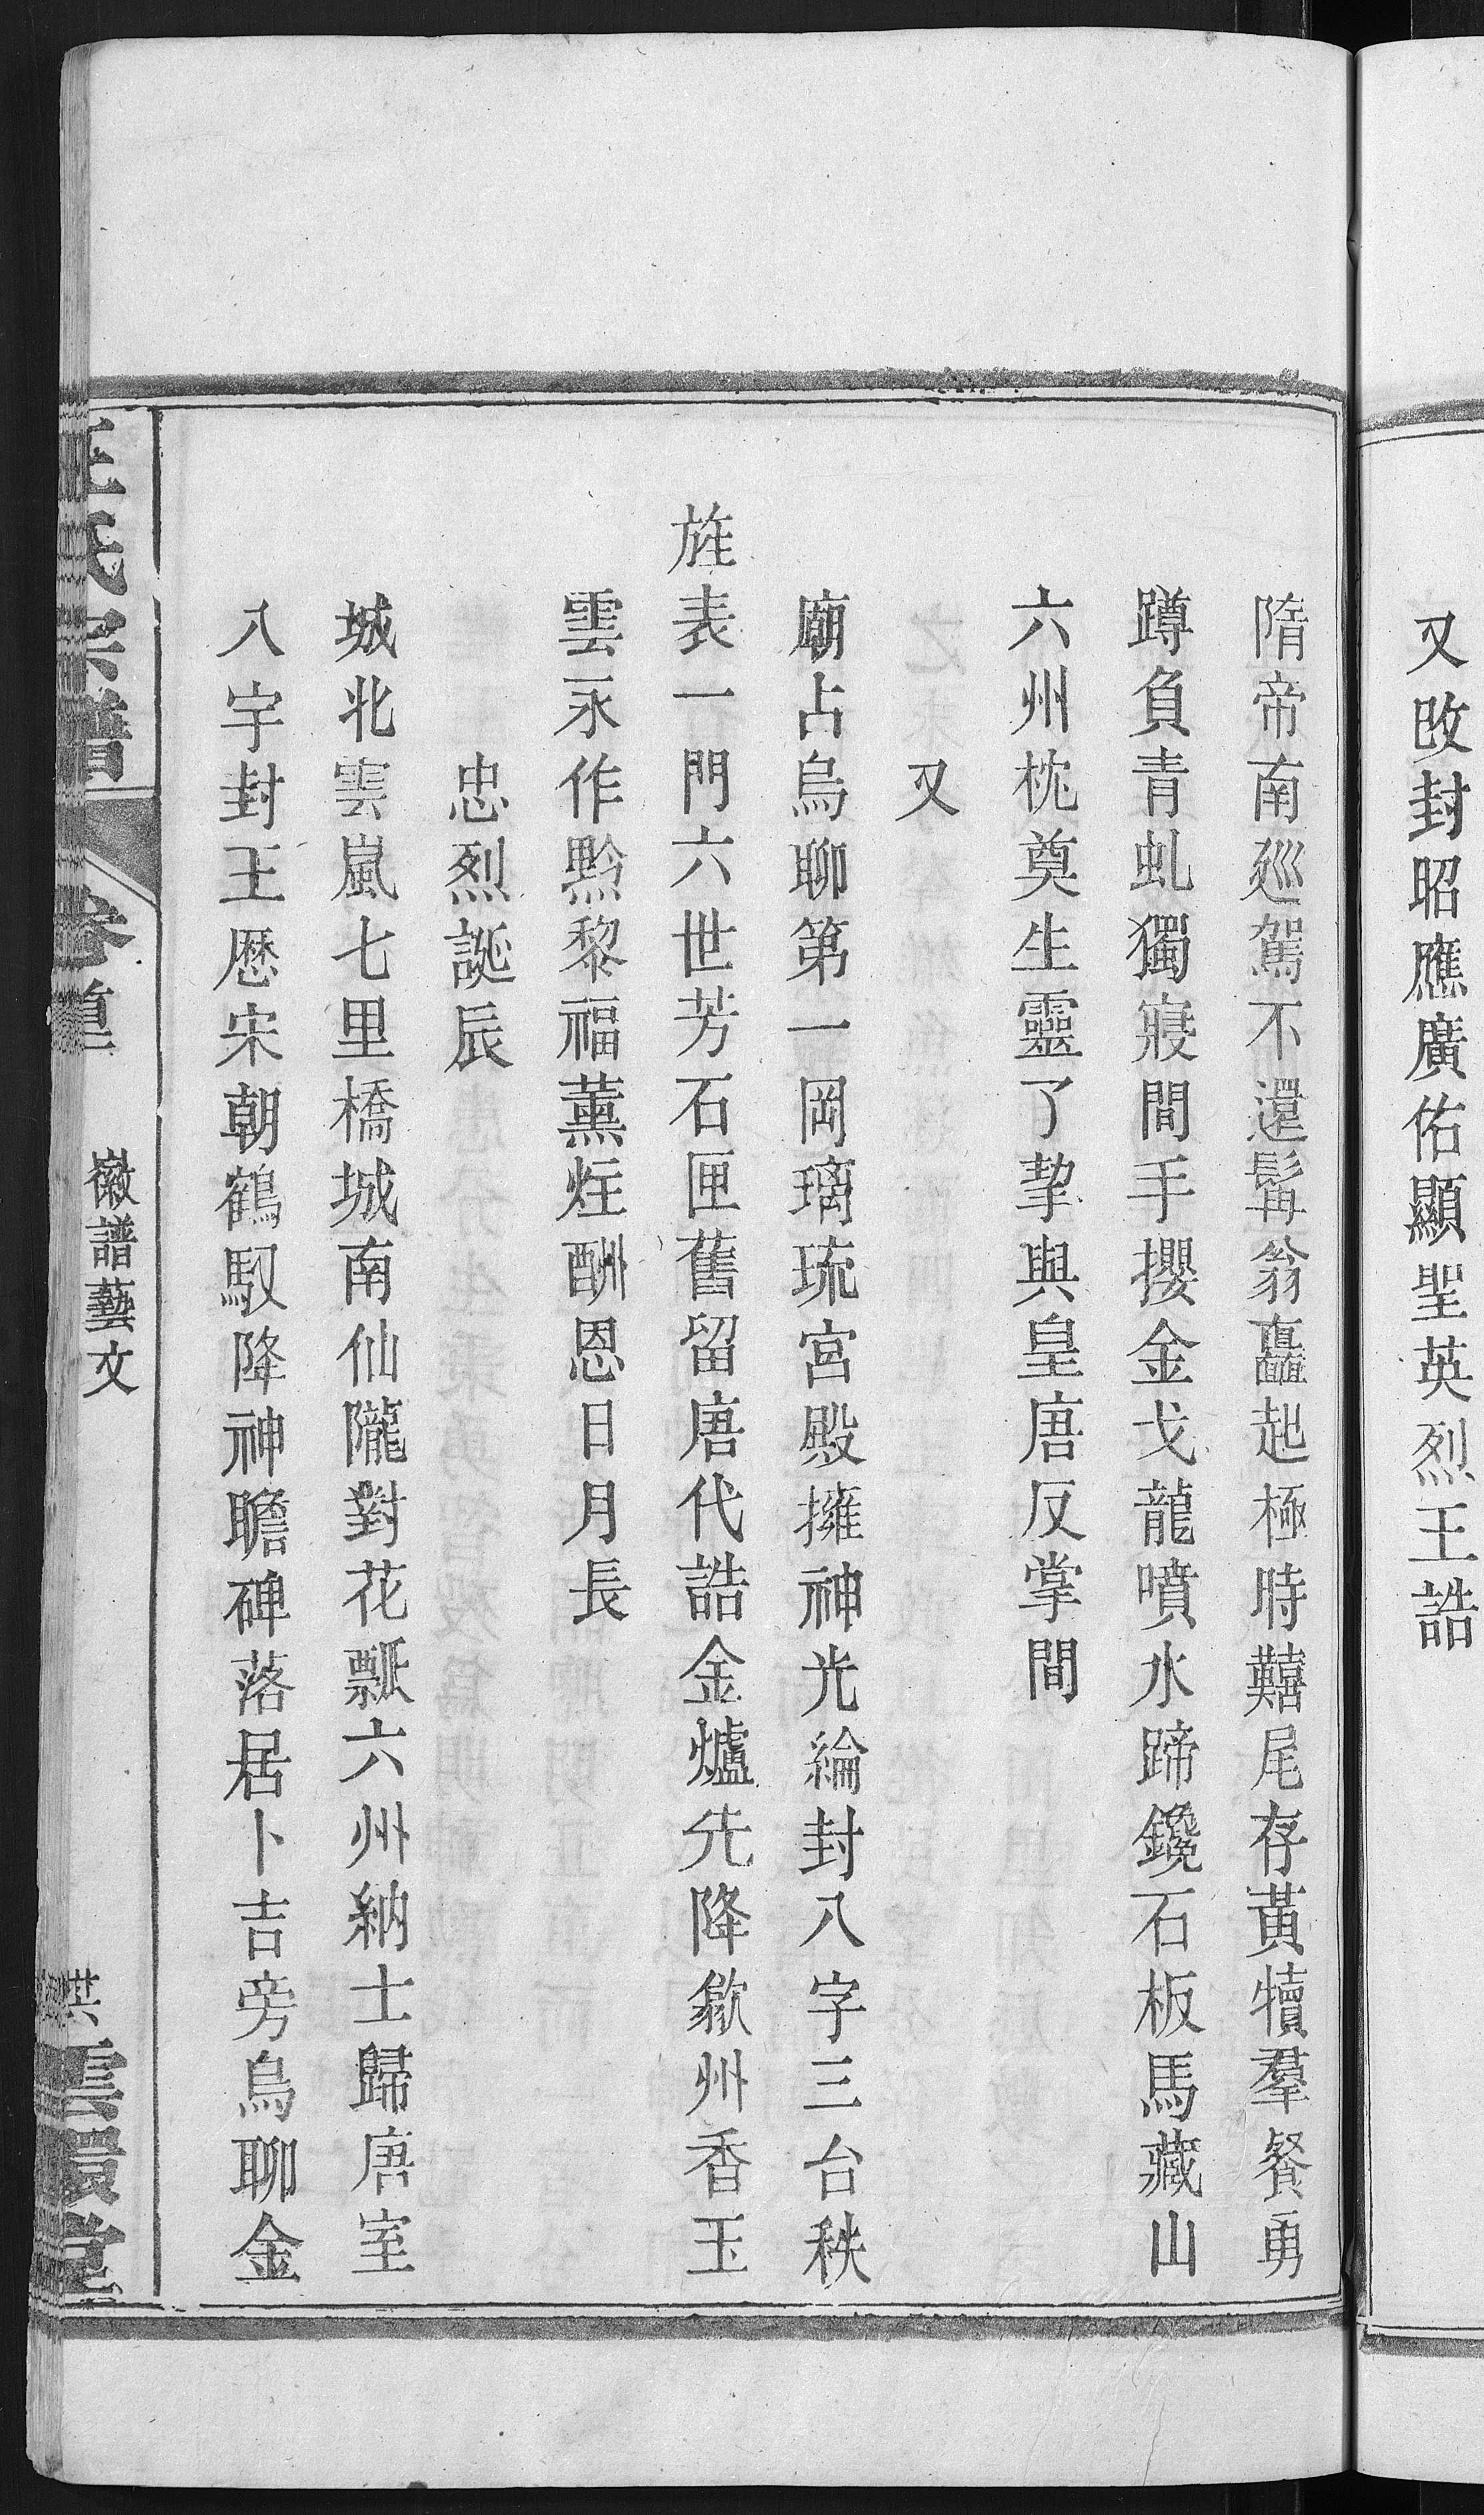 又改封昭應廣佑顯聖英烈王誥
隋帝南廵駕不還髯翁矗起極時囏尾存黃犢羣餐勇
蹲負青虬獨寢間手攖金戈龍噴水蹄鑱石板馬藏山
六州枕奠生靈了挈與皇唐反掌間
又
廟占烏聊第一岡璃琉宮殿擁神光綸封八字三台秩
旌表一門六世芳石匣舊留唐代誥金爐先降歙州香玉
雲永作黔黎福薰炷酬恩日月長
忠烈誕辰
城北雲嵐七里橋城南仙隴對花瓢六州納土歸唐室
八字封王歷宋朝鶴馭降神瞻碑落居卜吉旁烏聊金
汪氏宗譜
卷首
徽譜藝文
雲環堂